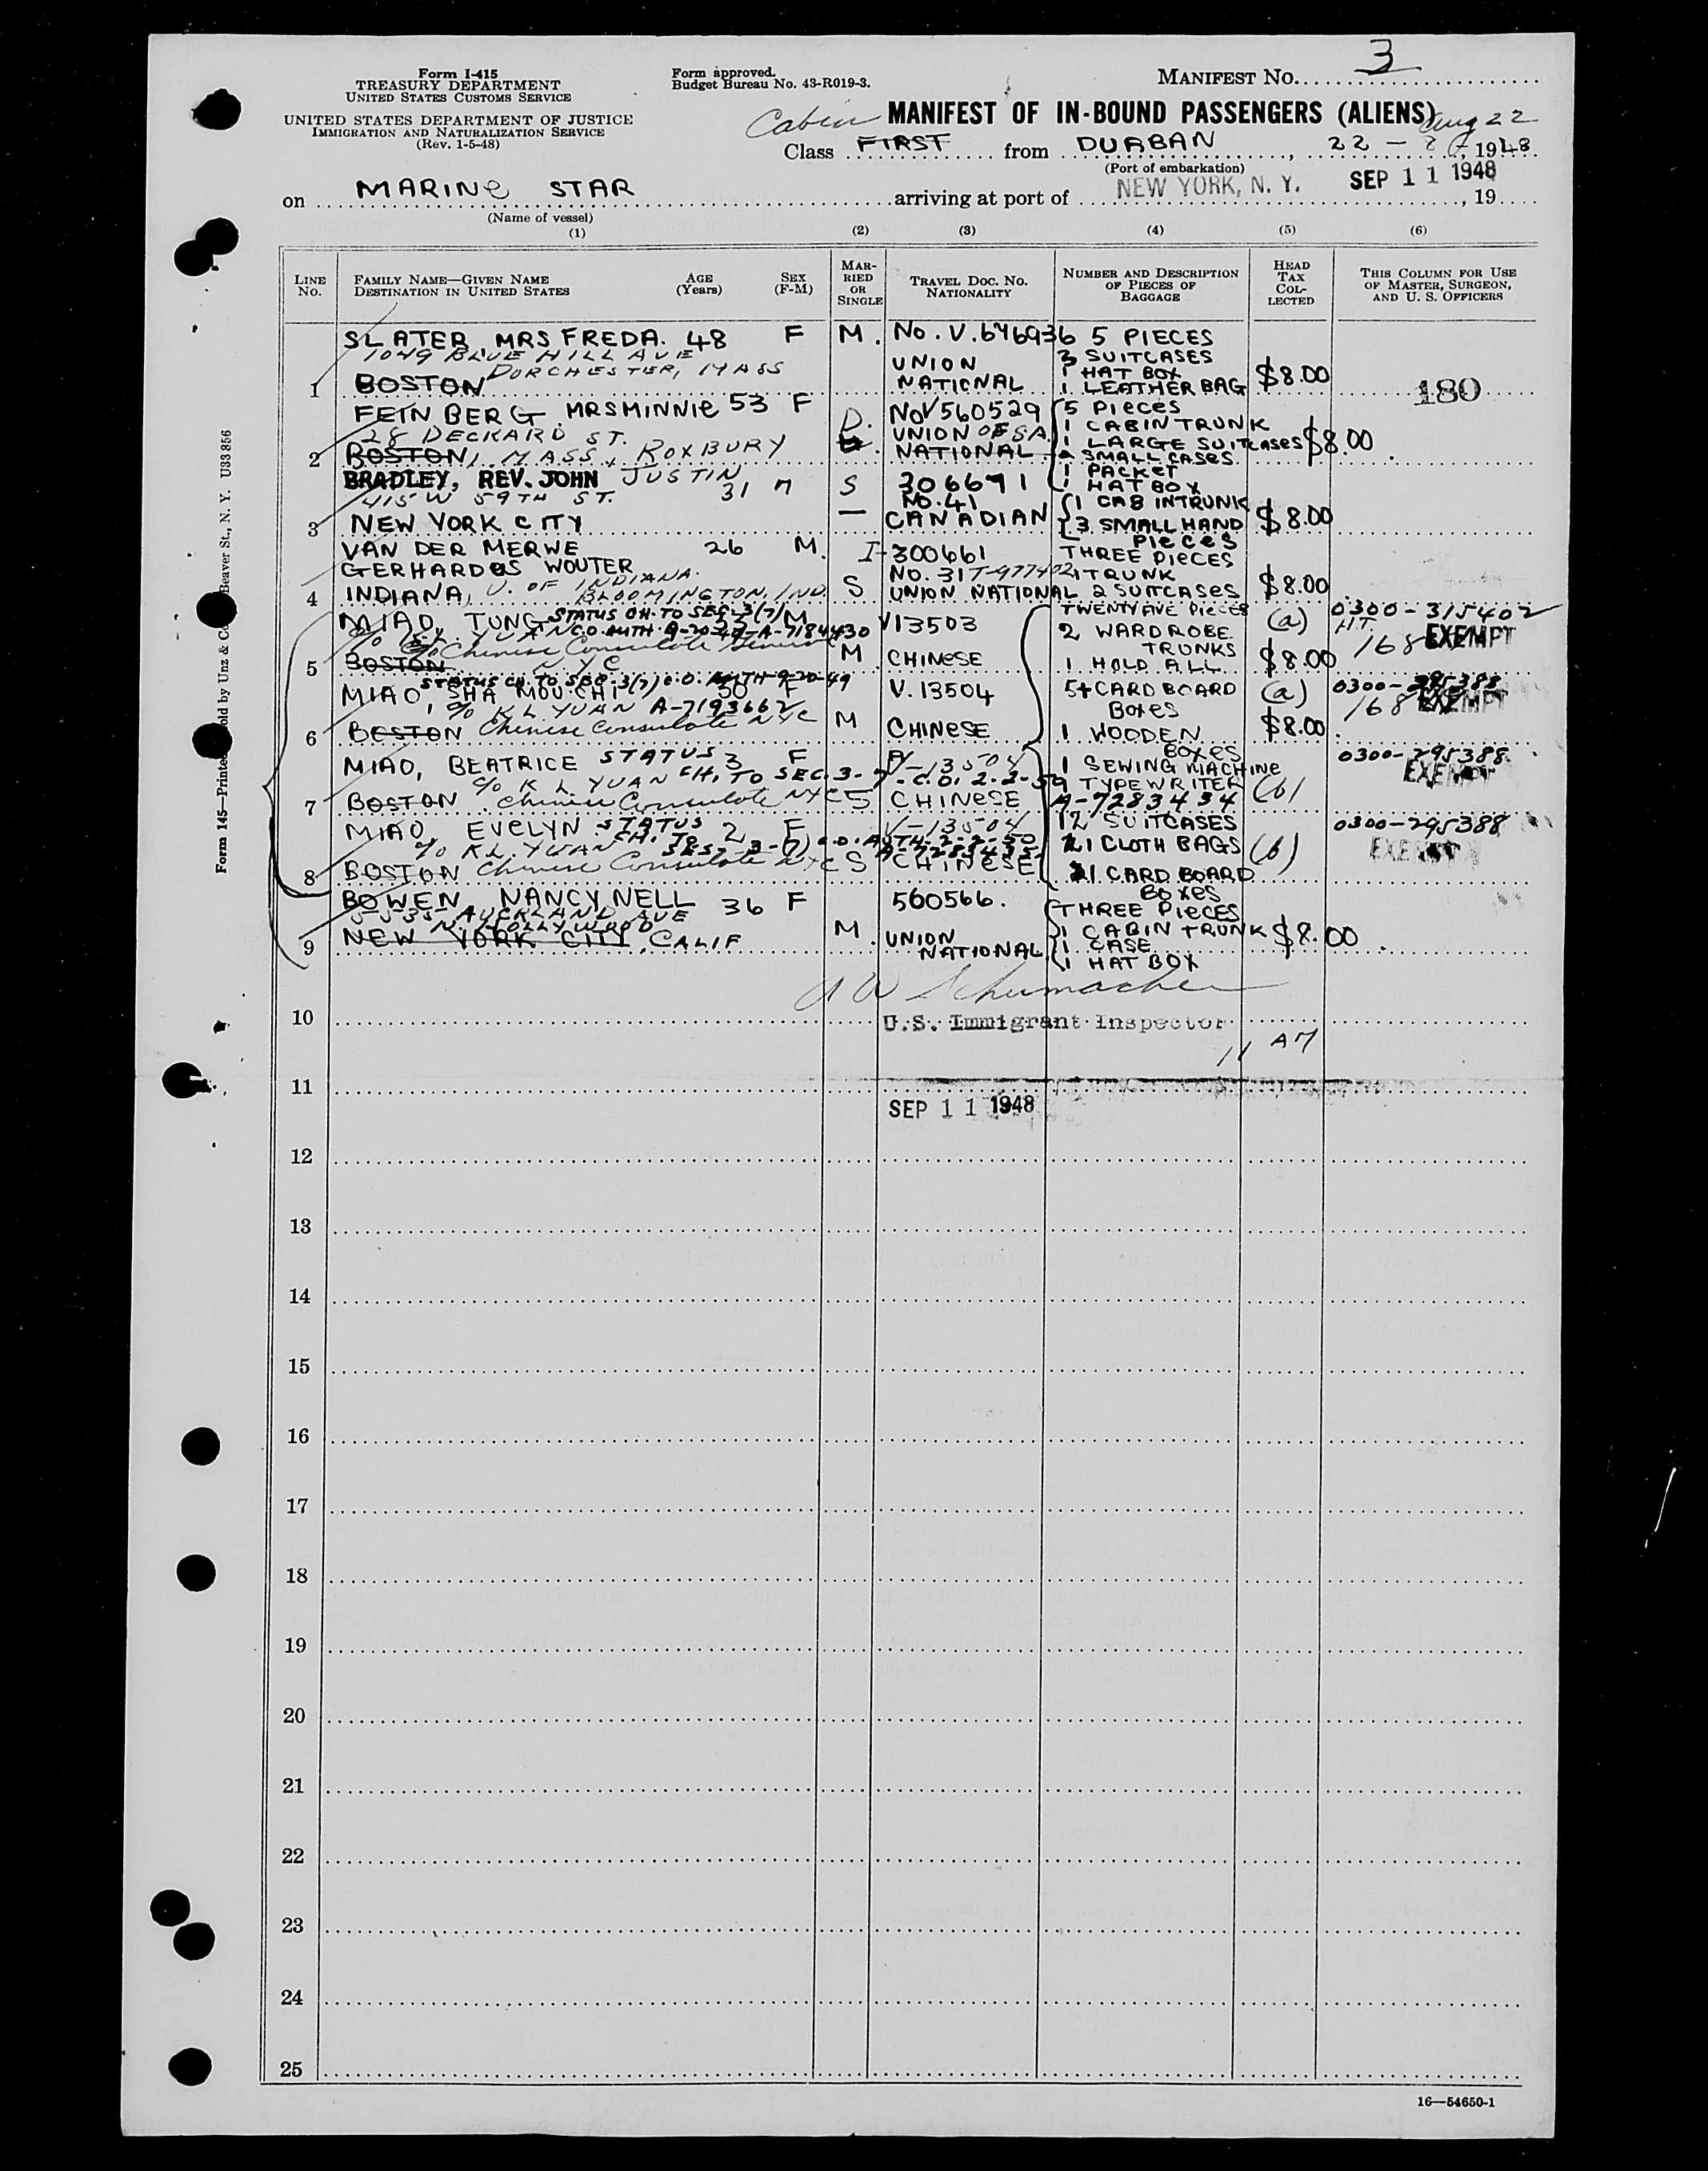 Form I-415
TREASURY DEPARTMENT
UNITED STATES CUSTOMS SERVICE
UNITED STATES DEPARTMENT OF JUSTICE
IMMIGRATION AND NATURALIZATION SERVICE
(Rev. 1-5-48)
Form approved.
Budget Bureau No. 43-R019-3.
MANIFEST No. 3
Cabin MANIFEST OF IN-BOUND PASSENGERS (ALIENS)
Aug 22
Class FIRST from DURBAN, 22 – , 1948
(Port of embarkation)
on MARINE STAR arriving at port of NEW YORK, N. Y. SEP 11 1948, 19
(Name of vessel)
(1) (2) (3) (4) (5) (6)
LINE No. FAMILY NAME—GIVEN NAME DESTINATION IN UNITED STATES AGE (Years) SEX (F-M) MARRIED OR SINGLE TRAVEL DOC. No. NATIONALITY NUMBER AND DESCRIPTION OF PIECES OF BAGGAGE HEAD TAX COLLECTED THIS COLUMN FOR USE OF MASTER, SURGEON, AND U. S. OFFICERS
SLATER MRS FREDA. 48 F M. No. V. 646936 5 PIECES
1049 BLUE HILL AVE UNION 3 SUITCASES
DORCHESTER, MASS 1 HAT BOX
1 BOSTON NATIONAL 1 LEATHER BAG $8.00 180
FEINBERG MRS MINNIE 53 F D. NoV560529 5 PIECES
28 DECKARD ST. UNION OF SA 1 CABIN TRUNK
2 BOSTON, MASS, ROXBURY NATIONAL 1 LARGE SUITCASES $8.00
SMALL CASES
1 PACKET
1 HAT BOX
BRADLEY, REV. JOHN JUSTIN 31 M S 306691
415 W 59TH ST. NO. 41 1 CABINTRUNK
3 NEW YORK CITY — CANADIAN 3 SMALL HAND PIECES $8.00
VAN DER MERWE 26 M. I-300661 THREE PIECES
GERHARDUS WOUTER NO. 31 T-977402 1 TRUNK
4 INDIANA, U. OF INDIANA. BLOOMINGTON, IND. S UNION NATIONAL 2 SUITCASES $8.00
MIAO, TUNG STATUS CH. TO SEC. 3(7) M V13503 (a) 0300-315402
C.O. AUTH. 9-20-49-A-7184430 2 WARDROBE TRUNKS H.T. 168 EXEMPT
c/o Chinese Consulate General
5 BOSTON N.Y.C. M CHINESE 1 HOLD ALL $8.00
STATUS CH. TO SEC. 3(7) C.O. AUTH 9-20-49
MIAO, SHA MOU CHI 30 F V. 13504 5+ CARD BOARD BOXES (a) 168 EXEMPT
c/o K L YUAN A-7193662
6 BOSTON Chinese Consulate NYC M CHINESE 1 WOODEN BOXES $8.00
MIAO, BEATRICE STATUS 3 F V-13504 1 SEWING MACHINE 0300-295388
c/o K L YUAN CH. TO SEC. 3-7-C.O. 2-2-50 1 TYPEWRITER EXEMPT
7 BOSTON Chinese Consulate NYC S CHINESE A-7283434 (b)
MIAO, EVELYN STATUS 2 F V-13504 12 SUITCASES 0300-295388
c/o K L YUAN CH. TO SEC. 3-(7) C.O. AUTH. 2-2-50 1 CLOTH BAGS (b) EXEMPT
8 BOSTON Chinese Consulate NYC S CHINESE 1 CARD BOARD BOXES
BOWEN NANCY NELL 36 F 560566. THREE PIECES
5535 AUCKLAND AVE 1 CABIN TRUNK
N. HOLLYWOOD
9 NEW YORK CITY, CALIF M. UNION NATIONAL 1 CASE $8.00
1 HAT BOX
A W Schumacher
10 U.S. Immigrant Inspector
11 AM
11
SEP 11 1948
12
13
14
15
16
17
18
19
20
21
22
23
24
25
16—54650-1
Form 145—Printed Sold by Unz & Co Beaver St., N. Y. U33856